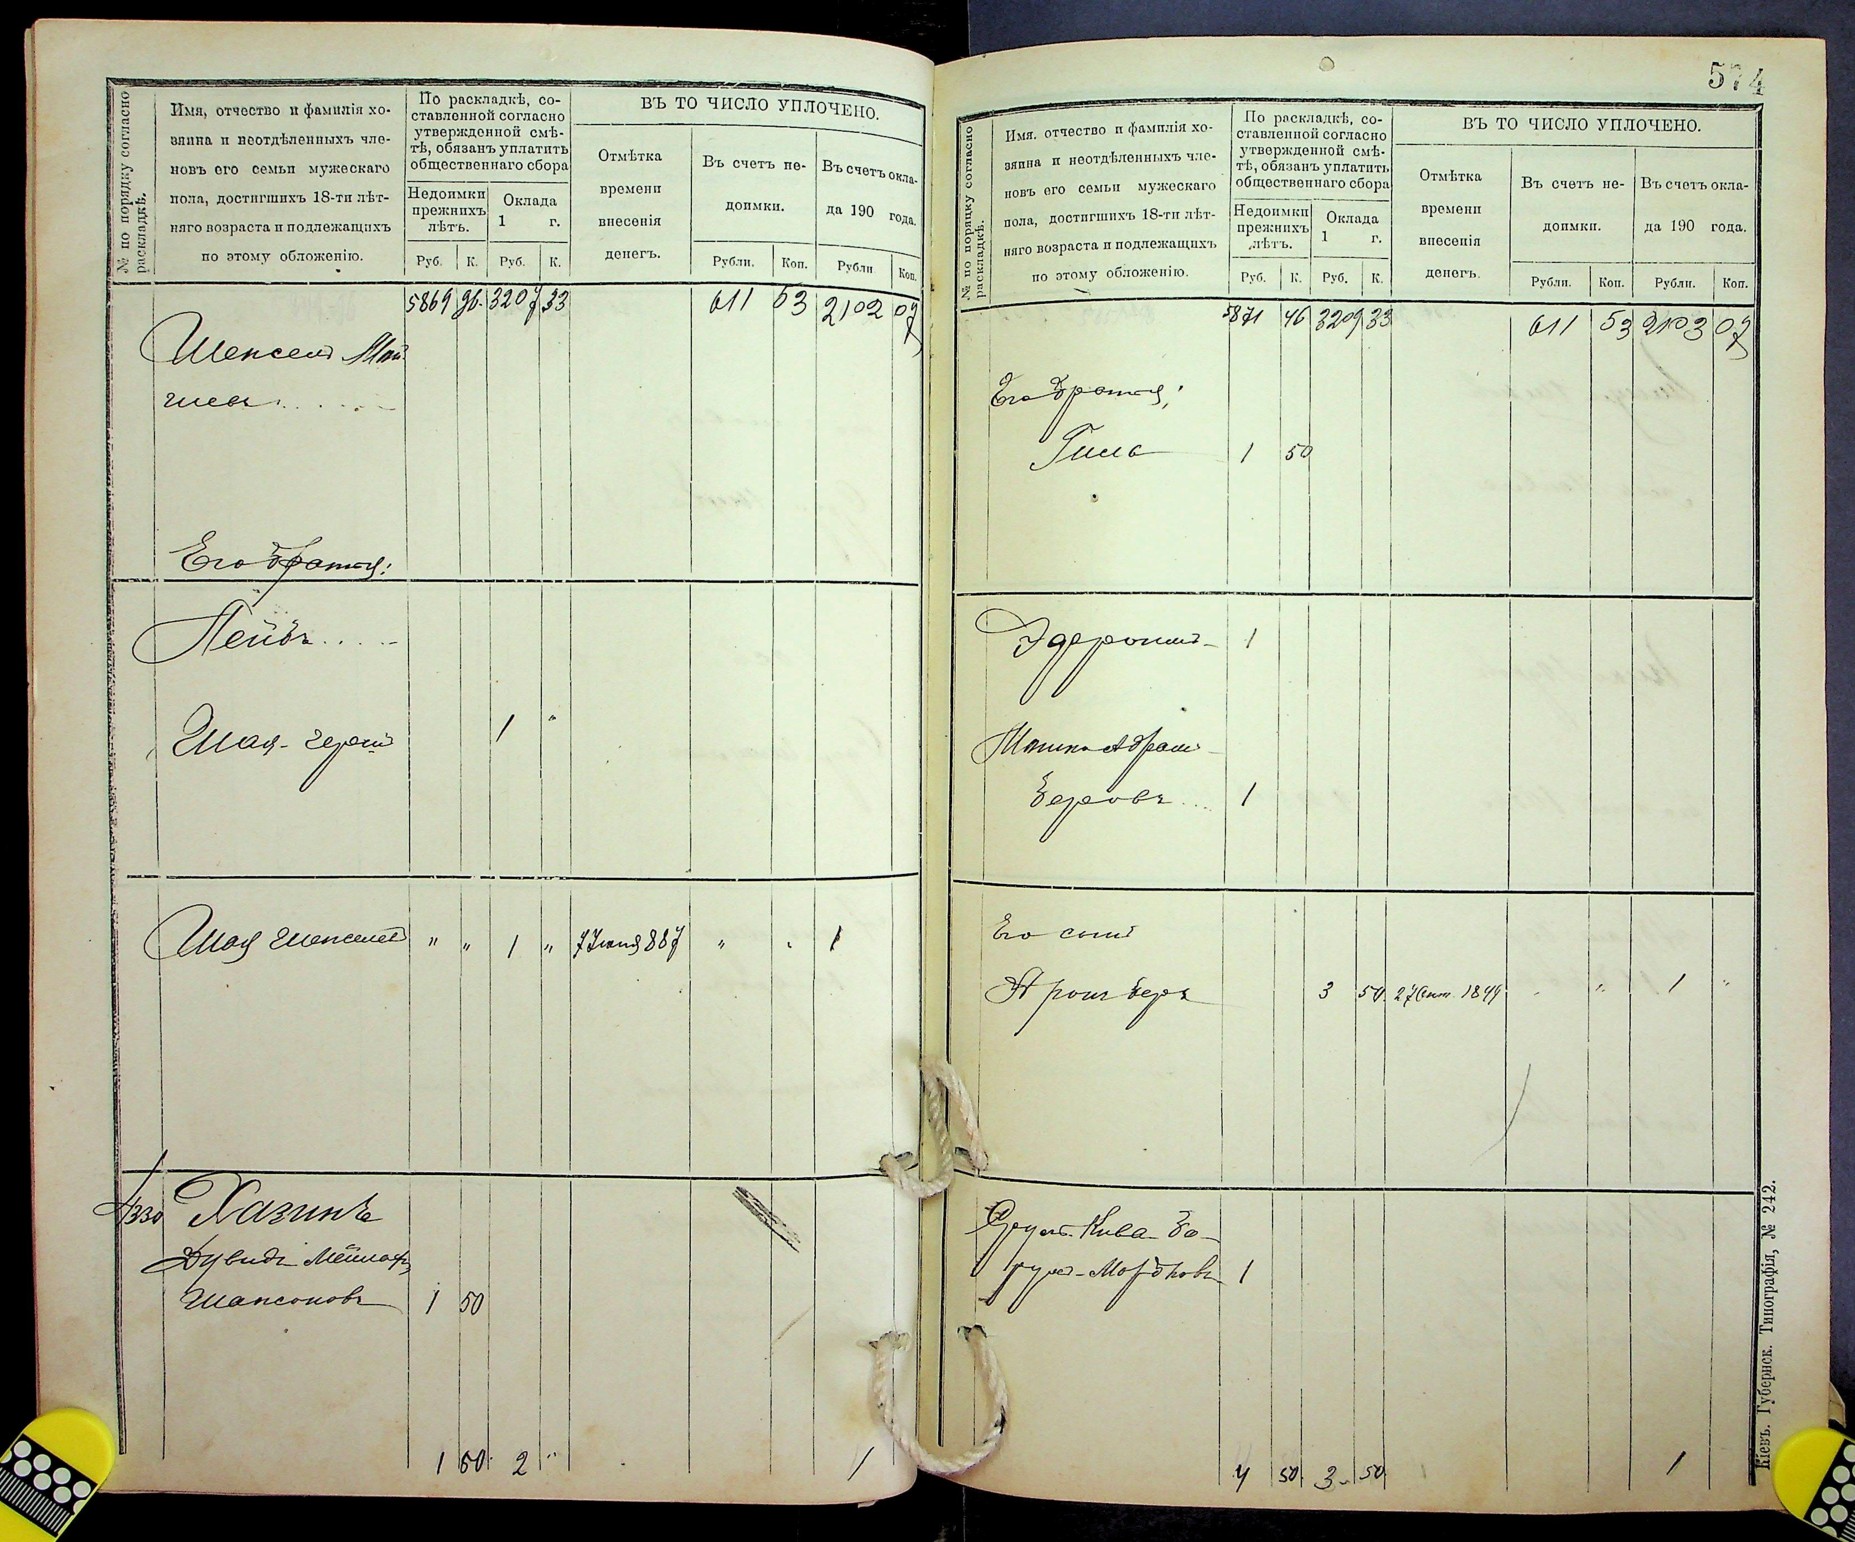 № по порядку согласно раскладкѣ.
Имя, отчество и фамилія хо-
зяина и неотдѣленныхъ чле-
новъ его семьи мужескаго
пола, достигшихъ 18-ти лѣт-
няго возраста и подлежащихъ
по этому обложенію.
По раскладкѣ, со-
ставленной согласно
утвержденной смѣ-
тѣ, обязанъ уплатить
общественнаго сбора
Недоимки
прежнихъ
лѣтъ.
Оклада
1 г.
Руб. К. Руб. К.
ВЪ ТО ЧИСЛО УПЛОЧЕНО.
Отмѣтка
времени
внесенія
денегъ.
Въ счетъ не-
доимки.
Въ счетъ окла-
да 190 года.
Рубли. Коп. Рубли Коп.
5869 96 3207 33 611 53 2102 07
Его братья:
Лейбъ
Шая-Герш
1 "
Шая
" " 1 " 7 Іюня 887 " " 1
1330 Хазинъ
Дувидъ
Шапсоновъ 1 50
1 50 2 " 1
574
№ по порядку согласно раскладкѣ.
Имя, отчество и фамилія хо-
зяина и неотдѣленныхъ чле-
новъ его семьи мужескаго
пола, достигшихъ 18-ти лѣт-
няго возраста и подлежащихъ
по этому обложенію.
По раскладкѣ, со-
ставленной согласно
утвержденной смѣ-
тѣ, обязанъ уплатить
общественнаго сбора
Недоимки
прежнихъ
лѣтъ.
Оклада
1 г.
Руб. К. Руб. К.
ВЪ ТО ЧИСЛО УПЛОЧЕНО.
Отмѣтка
времени
внесенія
денегъ.
Въ счетъ не-
доимки.
Въ счетъ окла-
да 190 года.
Рубли. Коп. Рубли. Коп.
5871 46 3209 33 611 53 2103 07
Его братья:
1 50
1
Абрам
Берковъ 1
Его сынъ
Арон Беръ 3 50 " " 1 "
Срул-Кива-Бо-
рух-Мордковъ 1
4 50 3 50 1
Кіевъ. Губернск. Типографія, № 242.